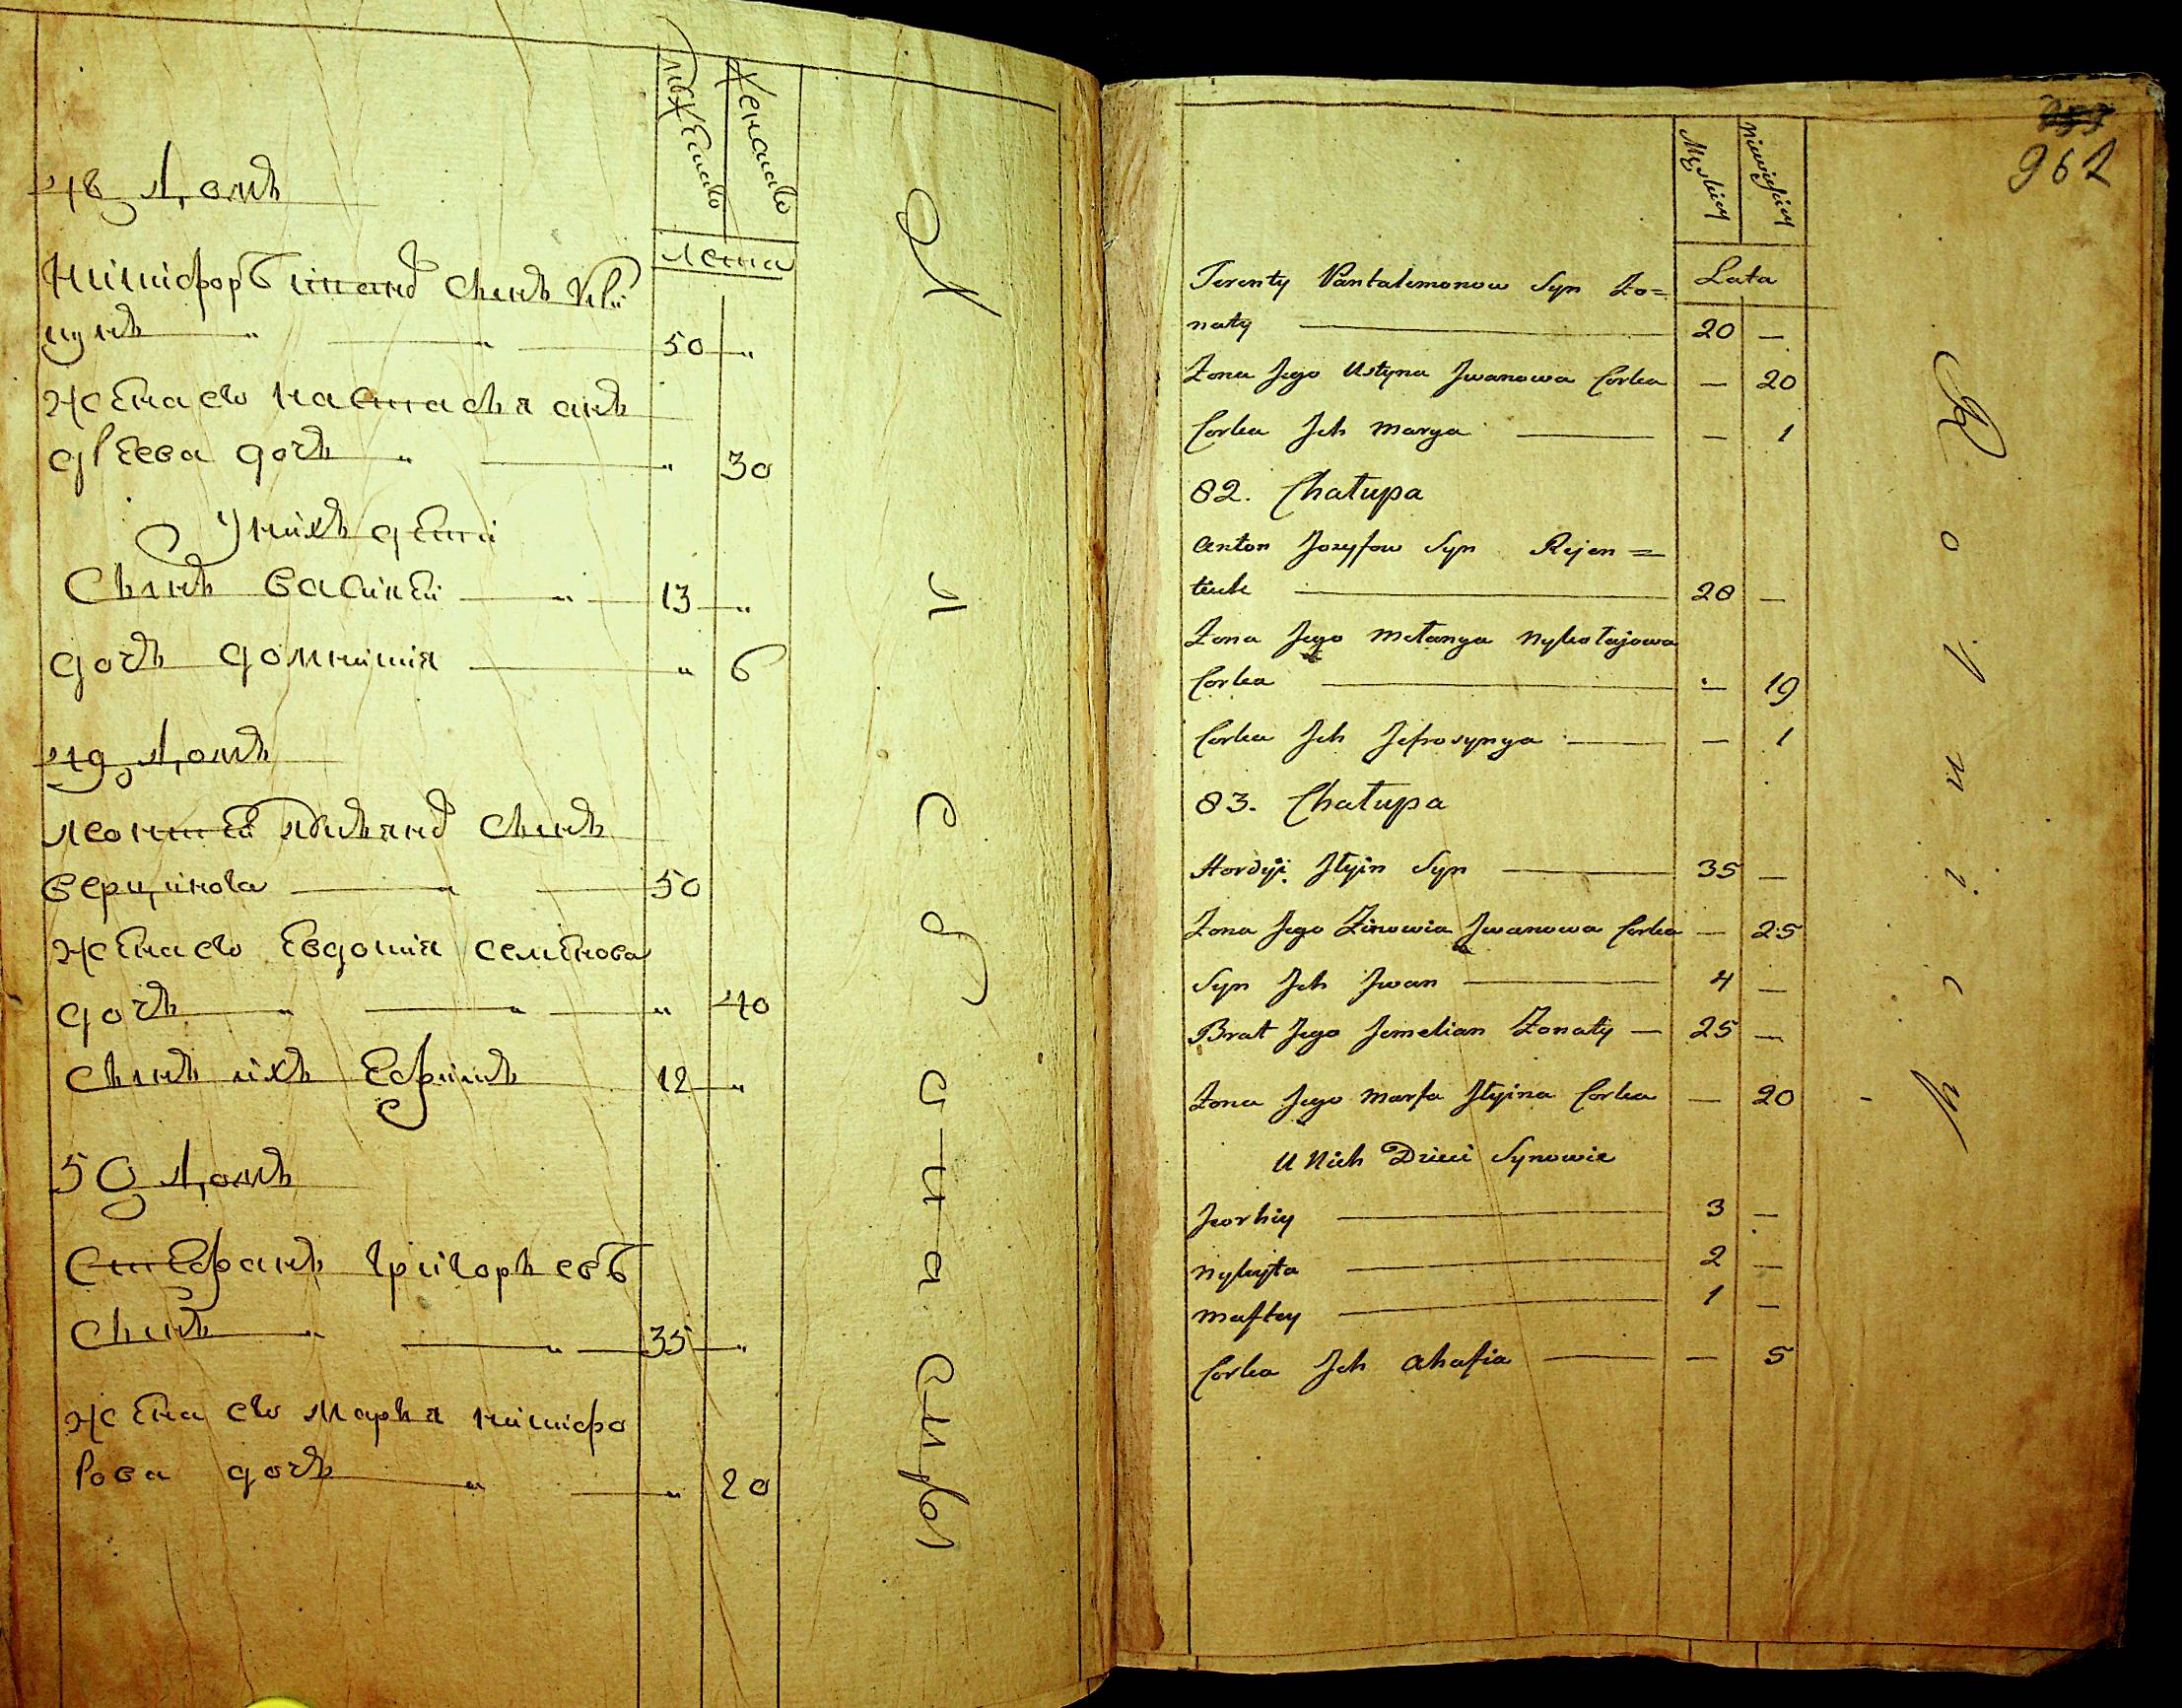 48 Домъ
мужеска
женска
лета
Никифоръ сынъ
50 „
жена его настасья ан
дреева дочь „ „ 30
У нихъ дети
Сынъ василей „ 13 „
дочь домникия „ 6
49 Домъ
леонтей сынъ
50
жена его Евдокия семенова
дочь „ „ „ 40
Сынъ ихъ Ефимъ 12 „
50 Домъ
Стефанъ григорьевъ
Сынъ „ „ 35 „
жена его марья никифо
рова дочь „ „ 20
957
962
Męskiey
Niewieściey
Lata
Terenty Pantalemonow Syn Żo=
naty 20 —
Żona Jego Ustyna Jwanowa Corka — 20
Corka Jch Marya — 1
82. Chałupa
Anton Jozyfow Syn Rejen=
tiuk 28 —
Żona Jego Mełanya Nykołajowa
Corka — 19
Corka Jch Jefrosynya — 1
83. Chałupa
Hordyji Jłyin Syn 35 —
Żona Jego Zinowia Jwanowa Corka — 25
Syn Jch Jwan 4 —
Brat Jego Jemelian Żonaty — 25 —
Żona Jego Marfa Jłyina Corka — 20
U Nich Dzieci Synowie
Jeorhiy 3 —
Nykyjta 2 —
Maftey 1 —
Corka Jch Ahafia — 5
R o l n i c y